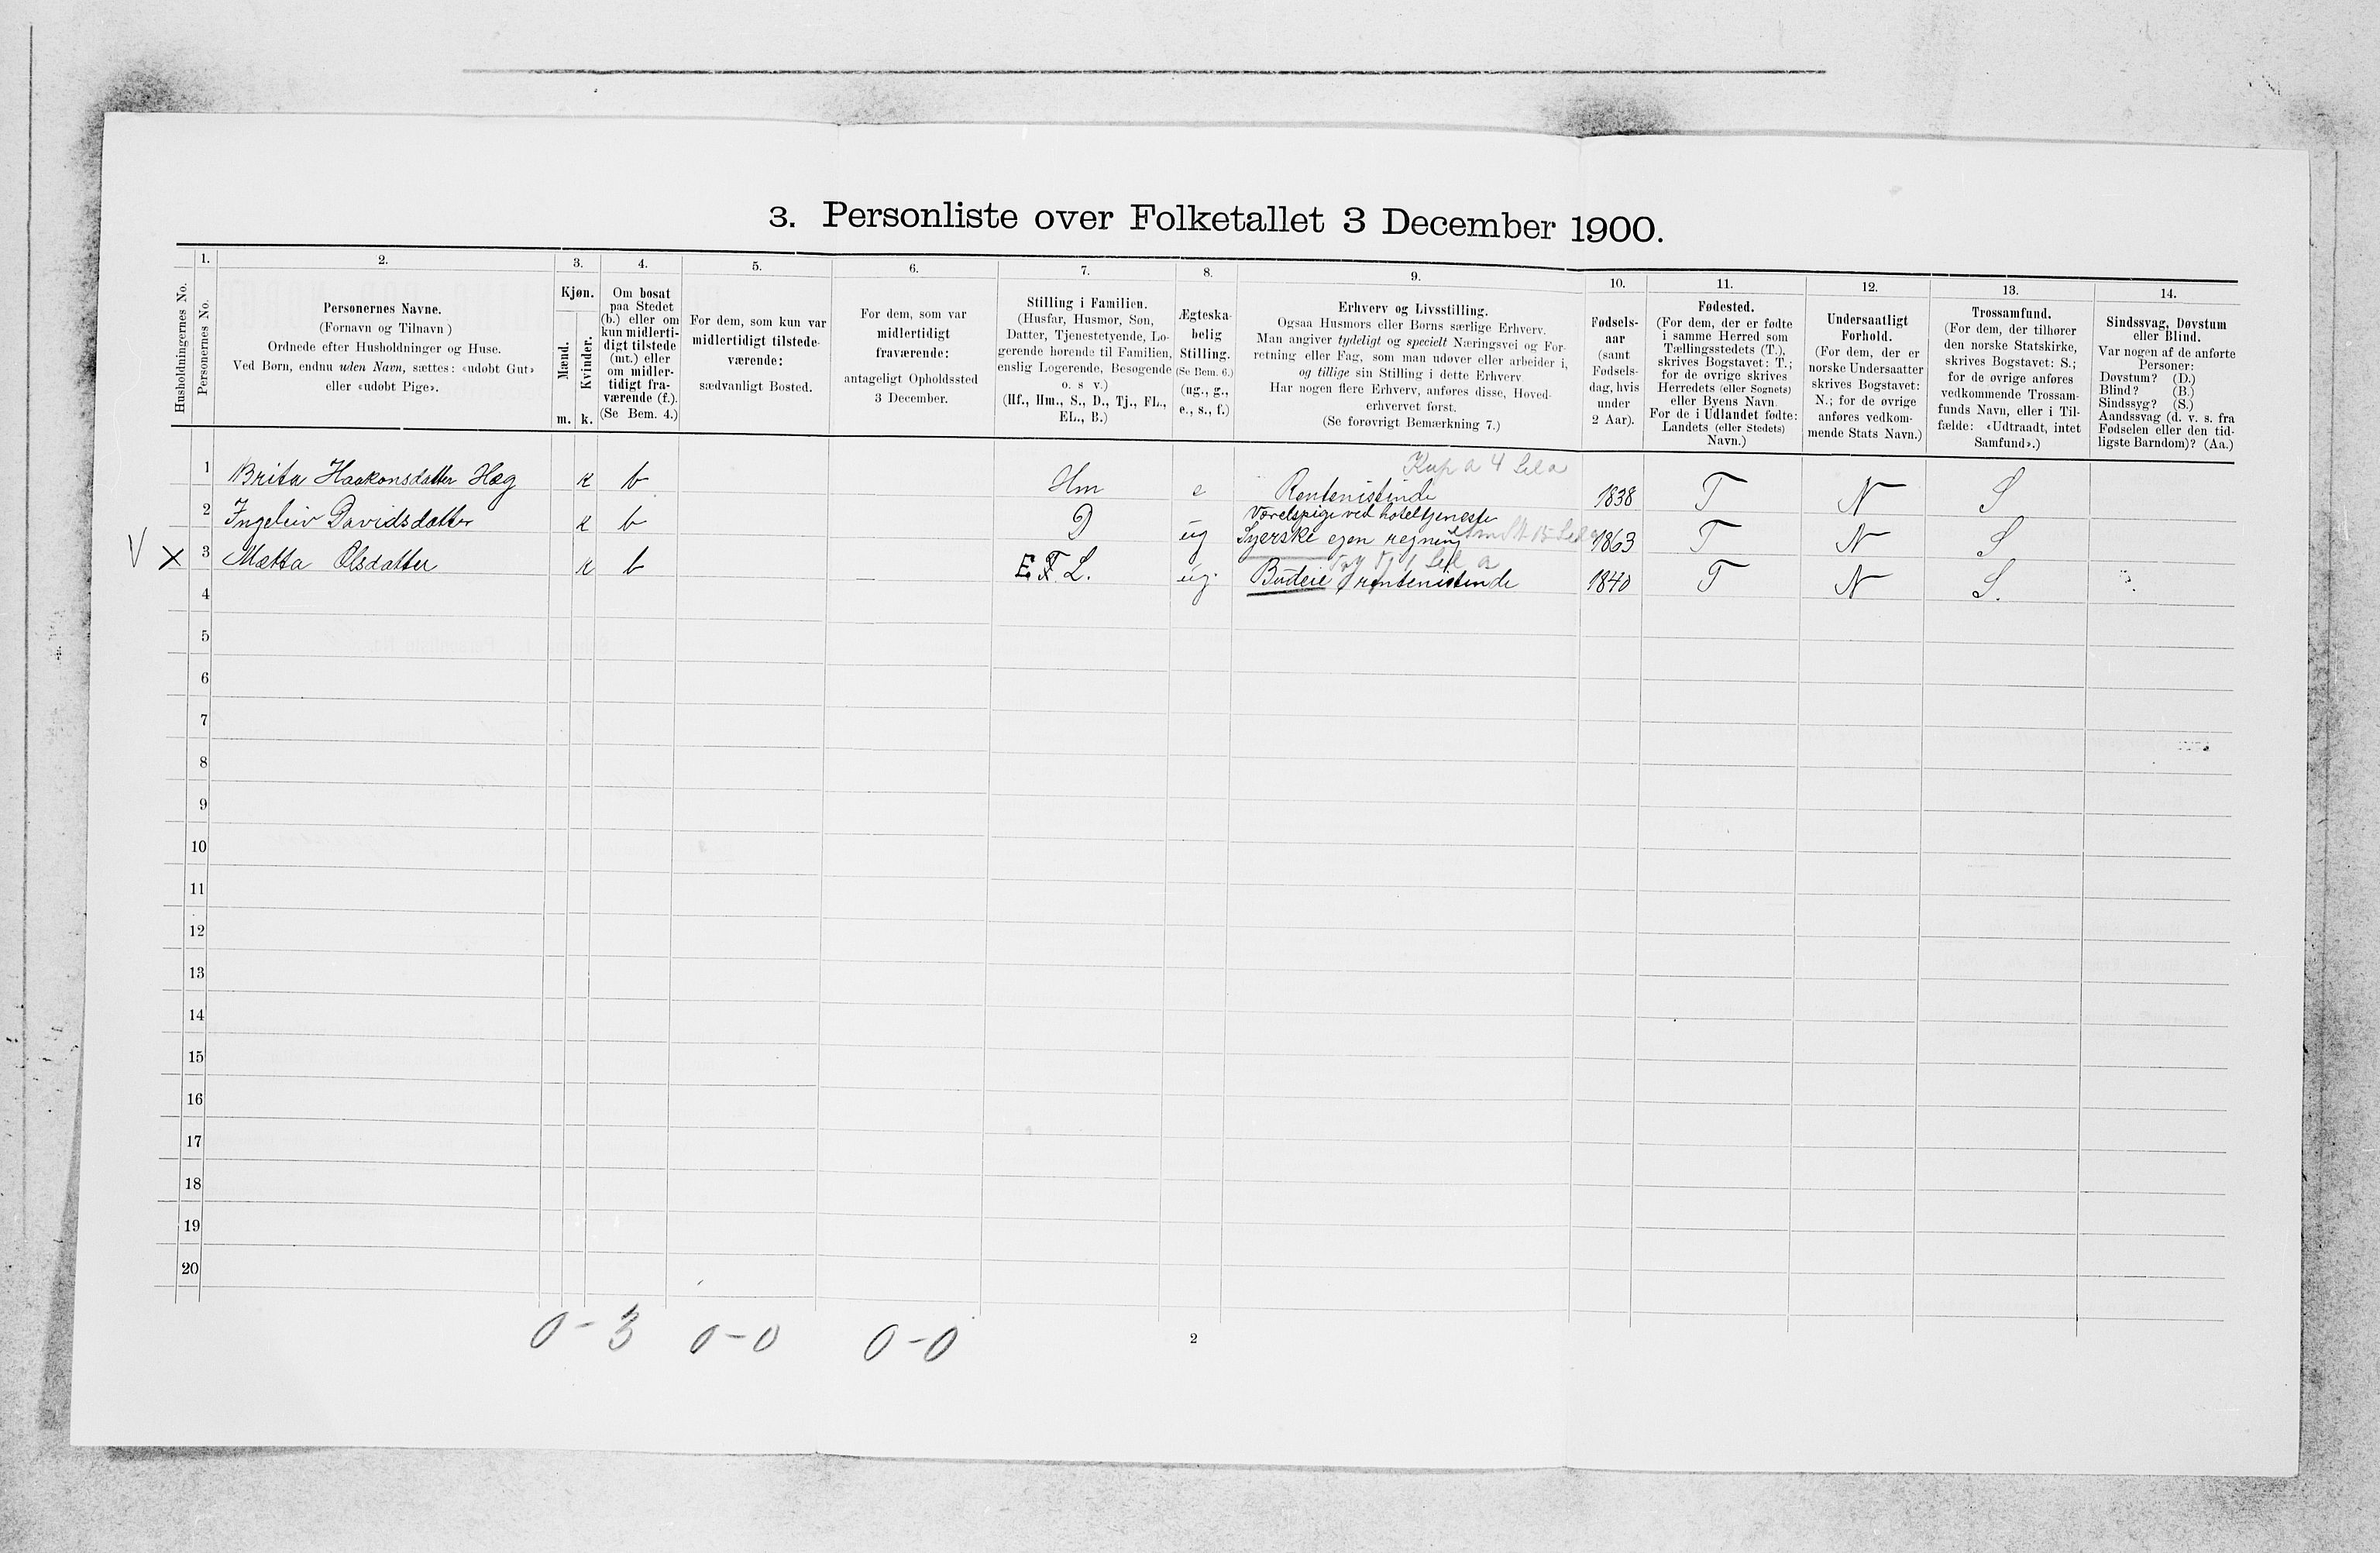 3. Personliste over Folketallet 3 December 1900.
Husholdningernes No.
1.
Personernes No.
2.
Personernes Navne.
(Fornavn og Tilnavn)
Ordnede efter Husholdninger og Huse.
Ved Børn, endnu uden Navn, sættes: «udøbt Gut»
eller «udøbt Pige».
3.
Kjøn.
Mænd.
Kvinder.
m. k.
4.
Om bosat
paa Stedet
(b.) eller om
kun midlerti-
digt tilstede
(mt.) eller
om midler-
tidigt fra-
værende (f.).
(Se Bem. 4.)
5.
For dem, som kun var
midlertidigt tilstede-
værende:
sædvanligt Bosted.
6.
For dem, som var
midlertidigt
fraværende:
antageligt Opholdssted
3 December.
7.
Stilling i Familien.
(Husfar, Husmor, Søn,
Datter, Tjenestetyende, Lo-
gerende hørende til Familien,
enslig Logerende, Besøgende
o. s v.)
(Hf., Hm., S., D., Tj., FL.,
EL., B.)
8.
Ægteska-
belig
Stilling.
(Se Bem. 6.)
(ug., g.,
e., s., f.)
9.
Erhverv og Livsstilling.
Ogsaa Husmors eller Børns særlige Erhverv.
Man angiver tydeligt og specielt Næringsvei og For-
retning eller Fag, som man udøver eller arbeider i,
og tillige sin Stilling i dette Erhverv.
Har nogen flere Erhverv, anføres disse, Hoved-
erhvervet først.
(Se forøvrigt Bemærkning 7.)
10.
Fødsels-
aar
(samt
Fødsels-
dag, hvis
under
2 Aar).
11.
Fødested.
(For dem, der er fødte
i samme Herred som
Tællingsstedets (T.),
skrives Bogstavet: T.;
for de øvrige skrives
Herredets (eller Sognets)
eller Byens Navn.
For de i Udlandet fødte:
Landets (eller Stedets)
Navn.)
12.
Undersaatligt
Forhold.
(For dem, der er
norske Undersaatter
skrives Bogstavet:
N.; for de øvrige
anføres vedkom-
mende Stats Navn.)
13.
Trossamfund.
(For dem, der tilhører
den norske Statskirke,
skrives Bogstavet: S.;
for de øvrige anføres
vedkommende Trossam-
funds Navn, eller i Til-
fælde: «Udtraadt, intet
Samfund».)
14.
Sindssvag, Døvstum
eller Blind.
Var nogen af de anførte
Personer:
Døvstum? (D.)
Blind? (B.)
Sindssyg? (S.)
Aandssvag (d. v. s. fra
Fødselen eller den tid-
ligste Barndom)? (Aa.)
1 Brita Haakonsdatter Hæg k b Hm e Rentenistinde 1838 T N S
2 Ingeleiv Davidsdatter k b D ug Værelspige ved hoteltjeneste
Syerske egen regning 1863 T N S
V X 3 Mætta Olsdatter k b E F L. ug. Budeie, rentenistinde 1840 T N S.
4
5
6
7
8
9
10
11
12
13
14
15
16
17
18
19
20
0-3 0-0 0-0
2